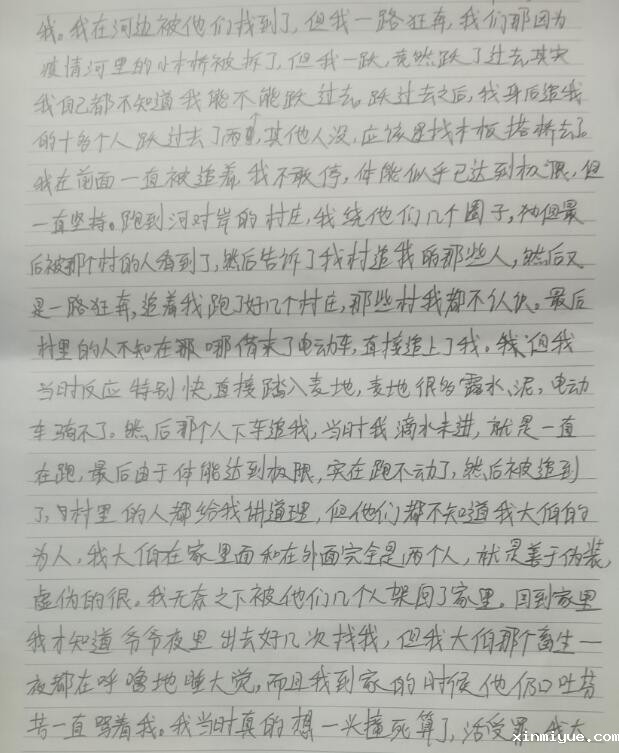 我。我在河边被他们找到了，但我一路狂奔，我们那因为
疫情河里的小木桥被拆了，但我一跃，竟然跃了过去，其实
我自己都不知道我能不能跃过去。跃过去之后，我身后追我
的十多个人跃过去了两，其他人没，应该是找木板搭桥去了。
我在前面一直被追着，我不敢停，体能似乎已达到极限，但
一直坚持。跑到河对岸的村庄，我绕他们几个圈子，但最
后被那个村的人看到了，然后告诉了我村追我的那些人，然后又
是一路狂奔，追着我跑了好几个村庄，那些村我都不认识。最后
村里的人不知在那哪借来了电动车，直接追上了我。但我
当时反应特别快，直接踏入麦地，麦地很多露水、泥，电动
车骑不了。然后那个人下车追我，当时我滴水未进，就是一直
在跑，最后由于体能达到极限，实在跑不动了，然后被追到
了，村里的人都给我讲道理，但他们都不知道我大伯的
为人，我大伯在家里面和在外面完全是两个人，就是善于伪装，
虚伪的很。我无奈之下被他们几个人架回了家里。回到家里
我才知道爷爷夜里出去好几次找我，但我大伯那个畜生一
夜都在呼噜地睡大觉，而且我到家的时候他仍口吐芬
芳一直骂着我。我当时真的想一头撞死算了，活受罪，我大
xinmiyue.com